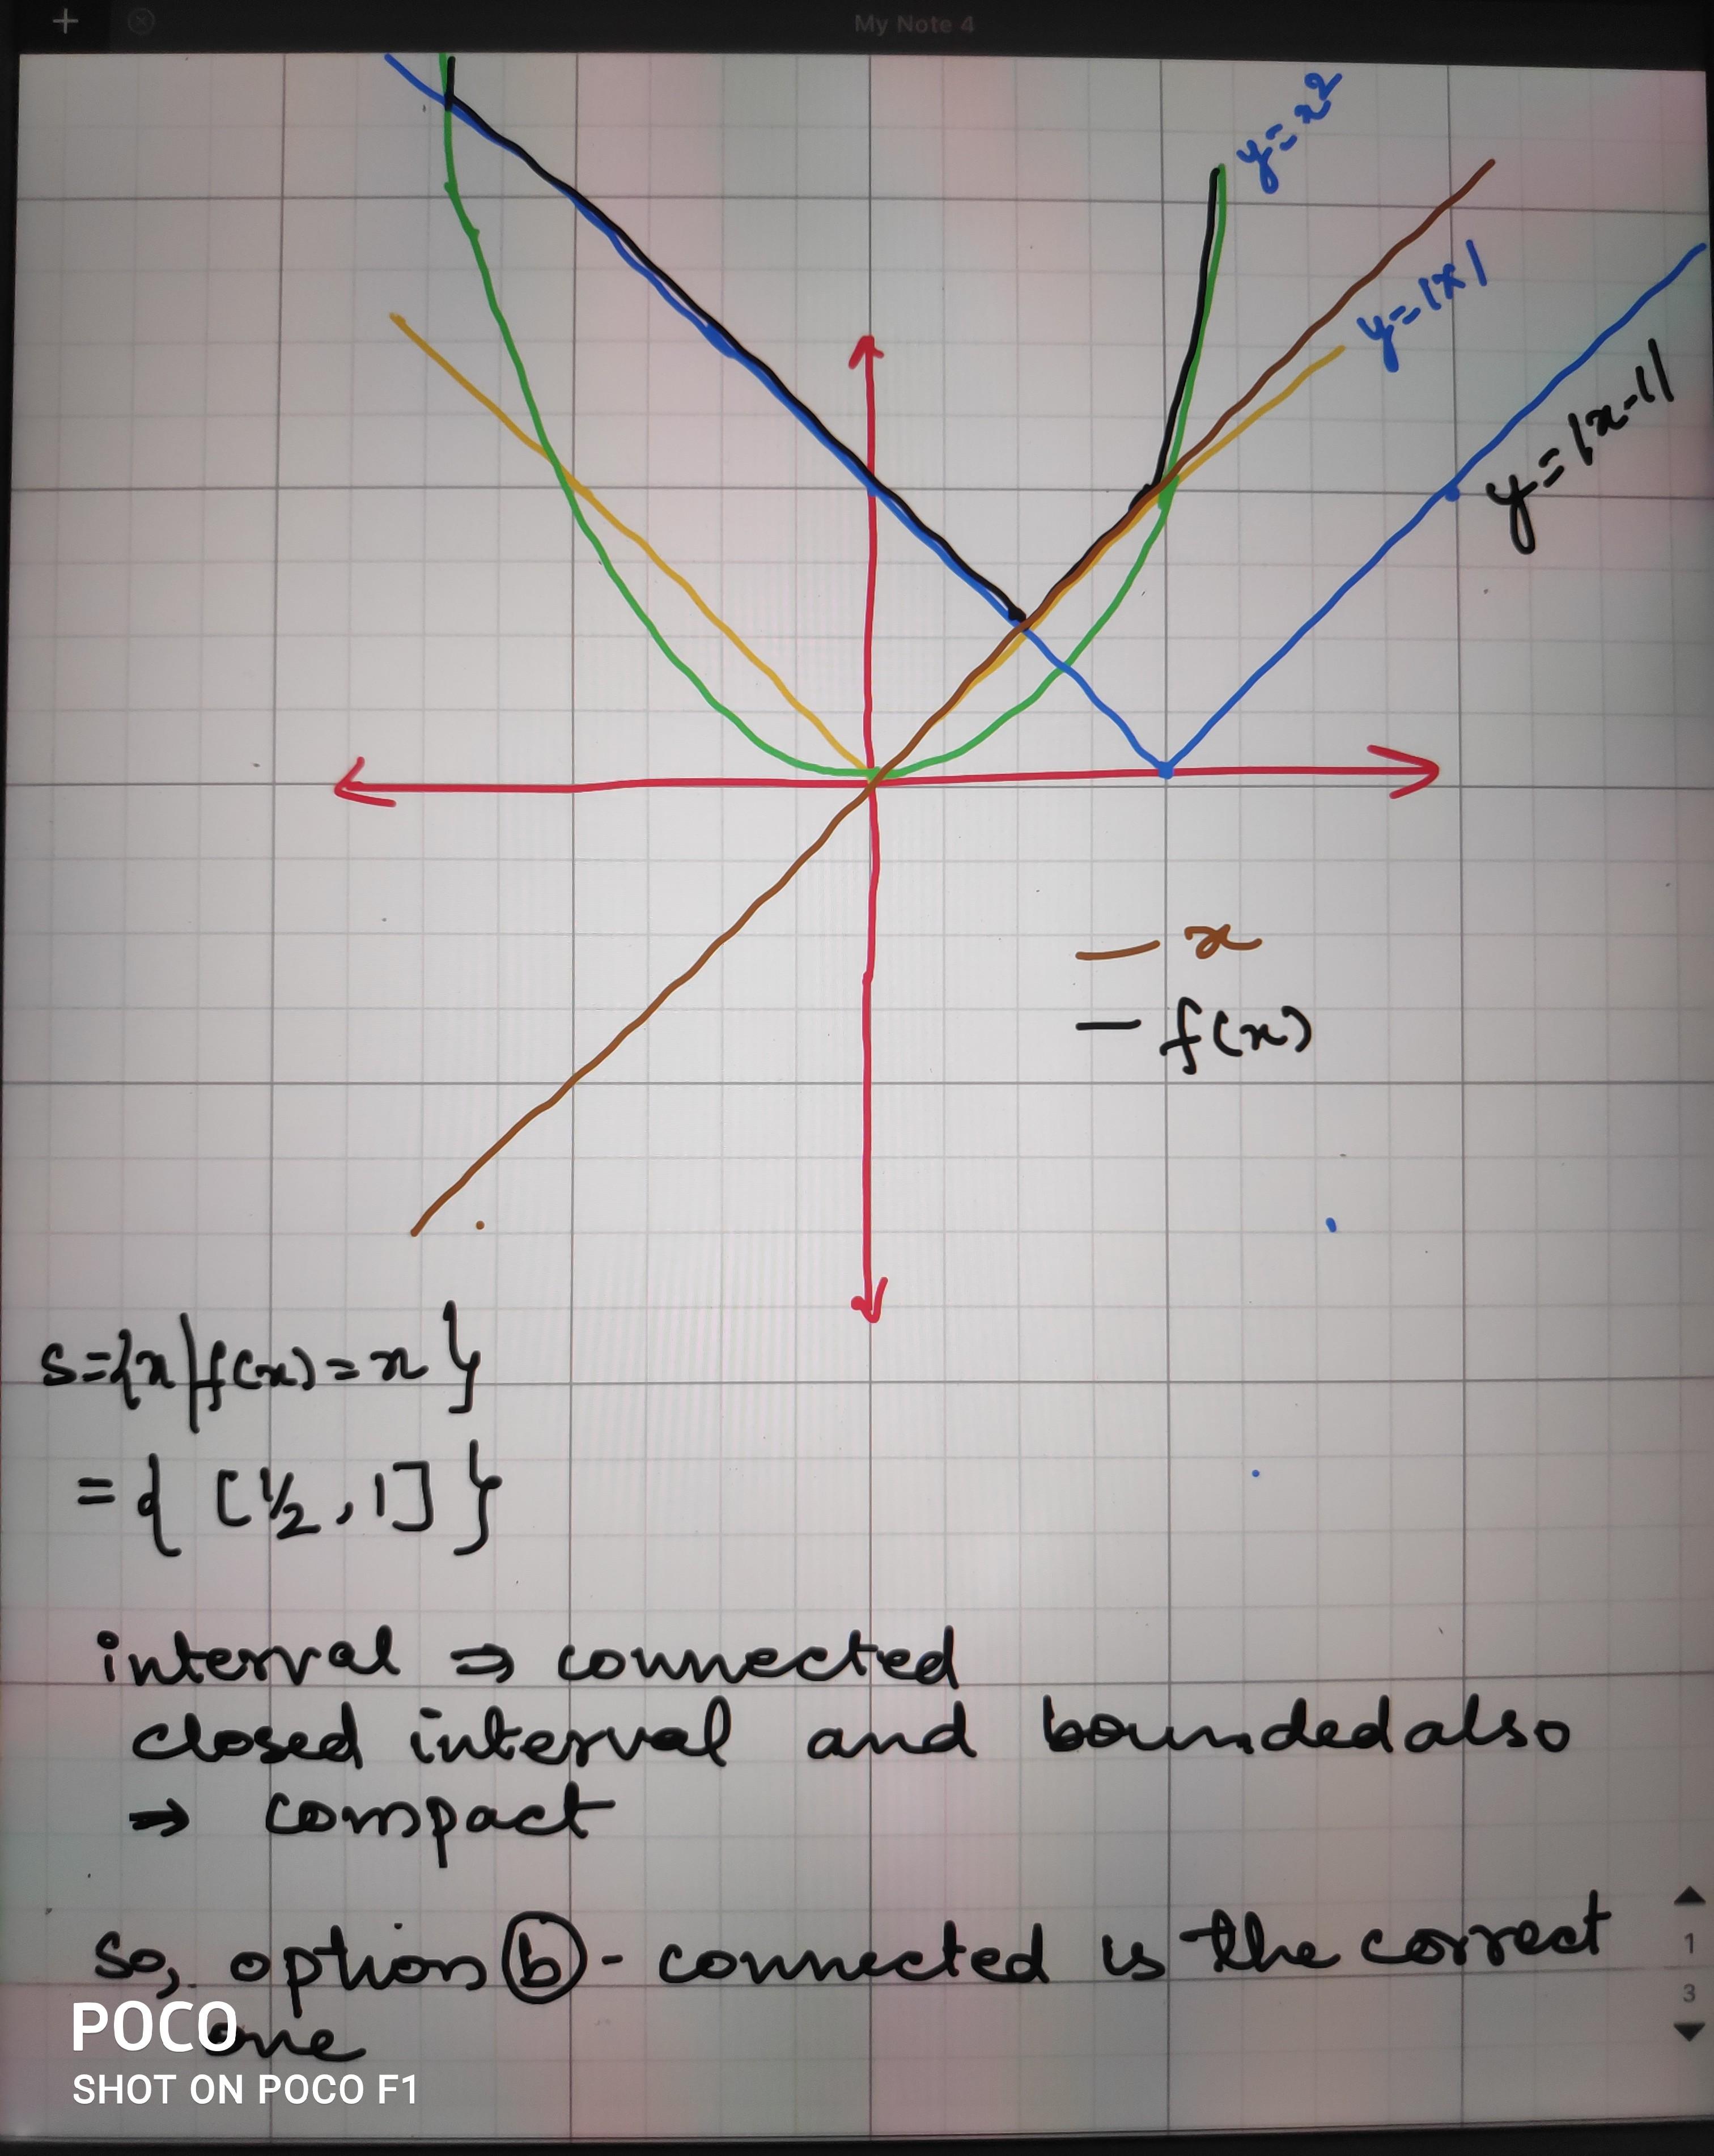 My Note 4
y=x²
y=|x|
y=|x-1|
x
f(x)
S={x|f(x)=x}
={ [1/2, 1] }
interval ⇒ connected
closed interval and bounded also
⇒ compact
So, option (b) - connected is the correct
one
1
3
POCO
SHOT ON POCO F1